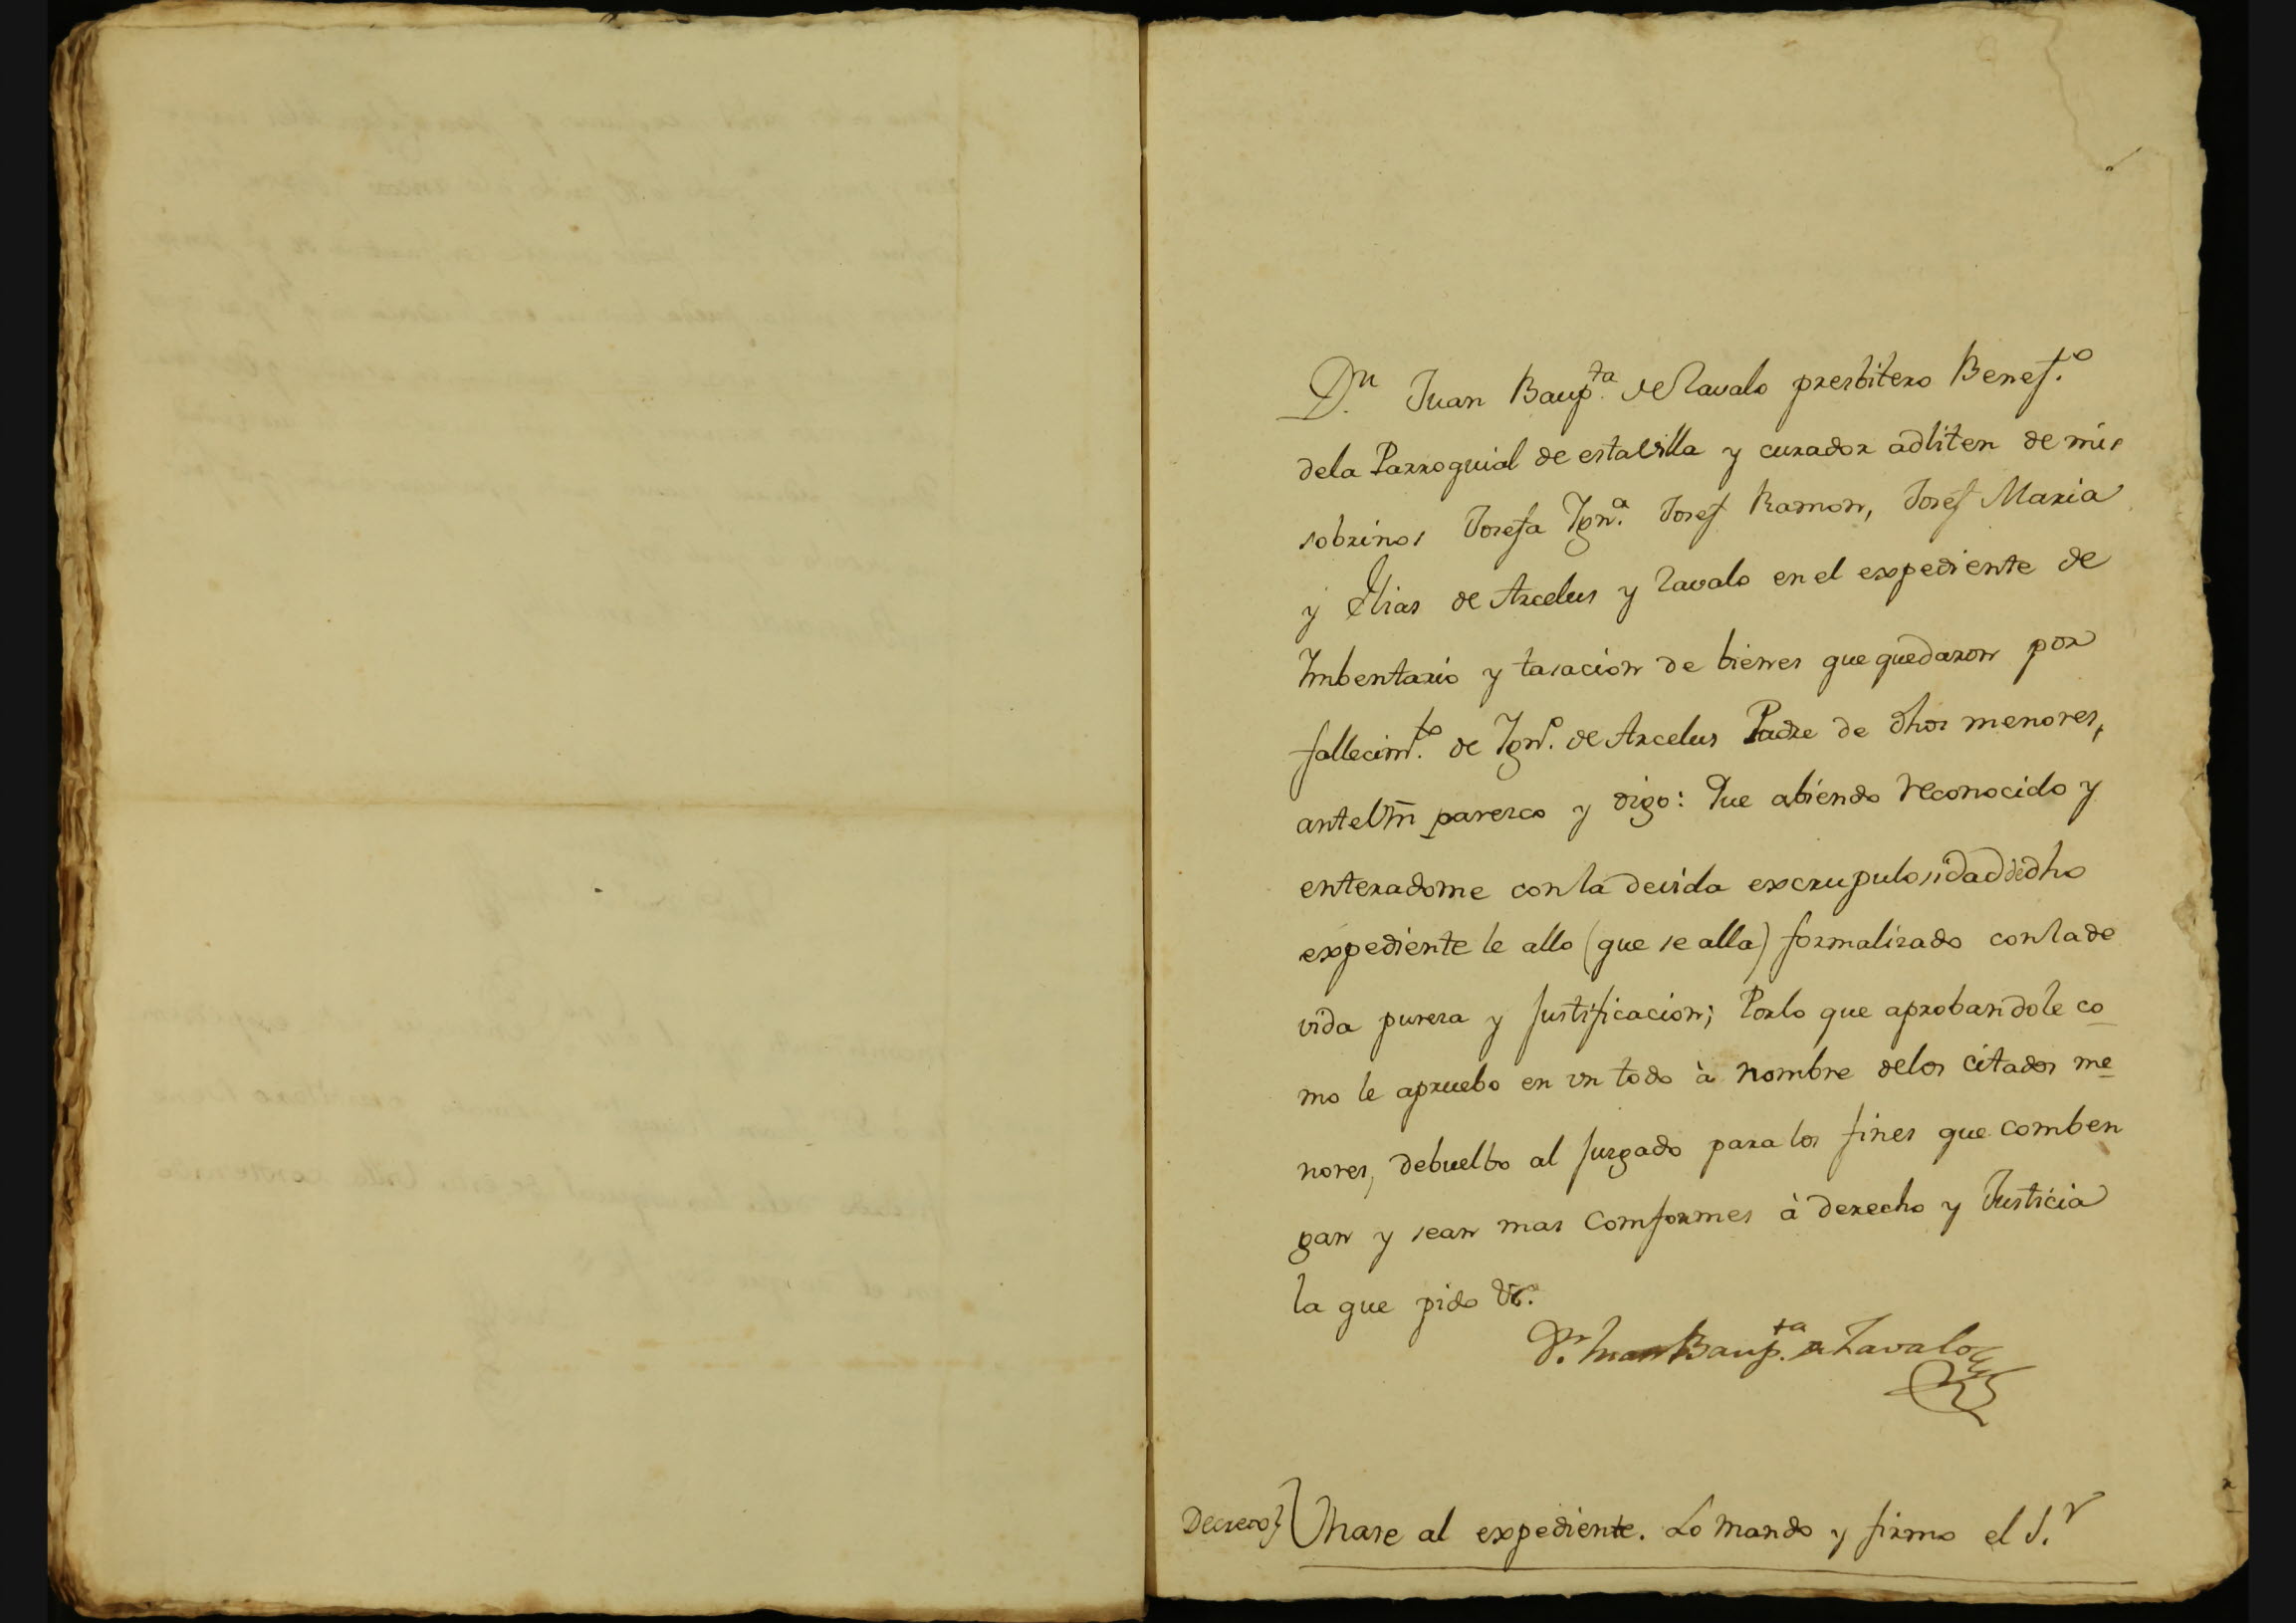 Dn. Juan Baupta. de Zavalo presbitero Benefo.
dela Parroquial de estaVilla y curador adliten de mis
sobrinos Josefa Igna. Josef Ramon, Josef Maria
y Elias de Arcelus y Zavalo en el expediente de
Imbentario y tasacion de bienes que quedaron por
fallecimto. de Igno. de Arcelus Padre de dhos menores,
anteVm paresco y digo: Que abiendo reconocido y
enteradome con la devida excrupulosidad de dho
expediente le allo (que se alla) formalizado con la de
vida pureza y justificacion; Porlo que aprobandole co
mo le apruebo en un todo à nombre delos citados me
nores, debuelbo al juzgado para los fines que comben
gan y sean mas comformes à derecho y Justicia
la que pido &c.
Dn. Juan Baupta. de Zavalo
Decreto} Unase al expediente. Lo mando y firmo el Sr.